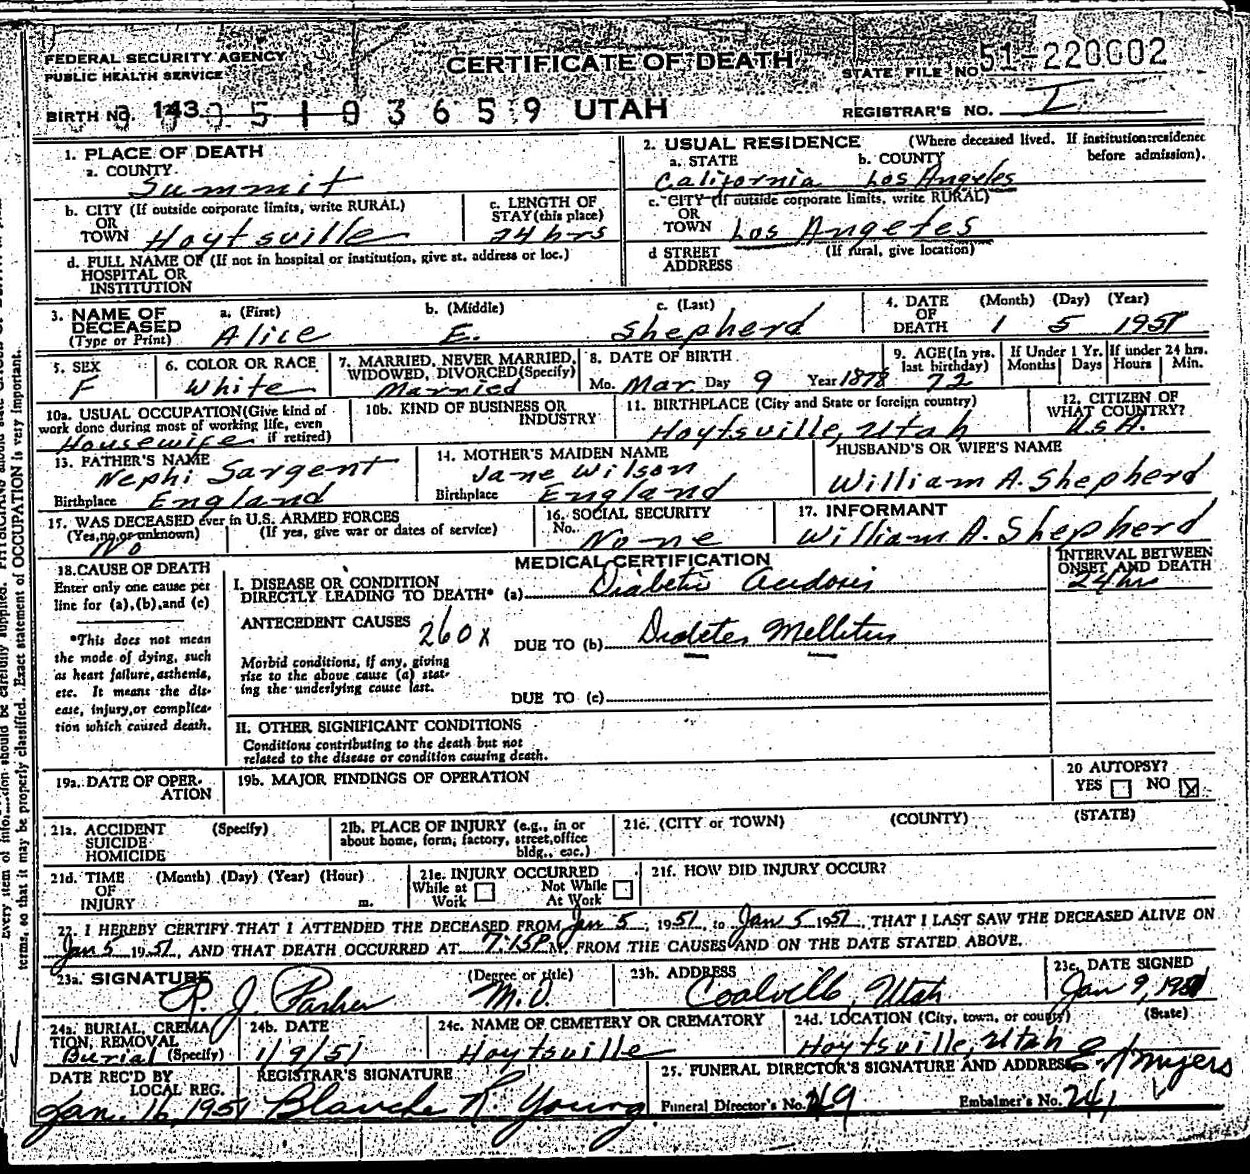 FEDERAL SECURITY AGENCY
PUBLIC HEALTH SERVICE
CERTIFICATE OF DEATH
STATE FILE NO. 51-220002
BIRTH NO. 143
0 5 1 0 3 6 5 9
UTAH
REGISTRAR'S NO. I
1. PLACE OF DEATH
a. COUNTY
Summit
2. USUAL RESIDENCE (Where deceased lived. If institution:residence before admission).
a. STATE b. COUNTY
California Los Angeles
b. CITY (If outside corporate limits, write RURAL)
OR
TOWN Hoytsville
c. LENGTH OF
STAY (this place)
24 hrs
c. CITY (If outside corporate limits, write RURAL)
OR
TOWN Los Angeles
d. FULL NAME OF (If not in hospital or institution, give st. address or loc.)
HOSPITAL OR
INSTITUTION
d STREET (If rural, give location)
ADDRESS
3. NAME OF
DECEASED
(Type or Print)
a. (First) b. (Middle) c. (Last)
Alice E. Shepherd
4. DATE (Month) (Day) (Year)
OF
DEATH 1 5 1951
5. SEX
F
6. COLOR OR RACE
White
7. MARRIED, NEVER MARRIED,
WIDOWED, DIVORCED(Specify)
Married
8. DATE OF BIRTH
Mo. Mar Day 9 Year 1878
9. AGE(In yrs.
last birthday)
72
If Under 1 Yr.
Months Days
If under 24 hrs.
Hours Min.
10a. USUAL OCCUPATION(Give kind of
work done during most of working life, even
if retired)
Housewife
10b. KIND OF BUSINESS OR
INDUSTRY
11. BIRTHPLACE (City and State or foreign country)
Hoytsville, Utah
12. CITIZEN OF
WHAT COUNTRY?
U.S.A.
13. FATHER'S NAME
Nephi Sargent
Birthplace England
14. MOTHER'S MAIDEN NAME
Jane Wilson
Birthplace England
HUSBAND'S OR WIFE'S NAME
William A. Shepherd
15. WAS DECEASED ever in U.S. ARMED FORCES
(Yes,no,or unknown) (If yes, give war or dates of service)
No
16. SOCIAL SECURITY
No. None
17. INFORMANT
William A. Shepherd
18. CAUSE OF DEATH
Enter only one cause per
line for (a), (b), and (c)
*This does not mean
the mode of dying, such
as heart failure, asthenia,
etc. It means the dis-
ease, injury, or complica-
tion which caused death.
MEDICAL CERTIFICATION
INTERVAL BETWEEN
ONSET AND DEATH
I. DISEASE OR CONDITION
DIRECTLY LEADING TO DEATH* (a) Diabetic Acidosis
24 hrs
ANTECEDENT CAUSES 260X
DUE TO (b) Diabetes Mellitus
Morbid conditions, if any, giving
rise to the above cause (a) stat-
ing the underlying cause last.
DUE TO (c)
II. OTHER SIGNIFICANT CONDITIONS
Conditions contributing to the death but not
related to the disease or condition causing death.
19a. DATE OF OPER-
ATION
19b. MAJOR FINDINGS OF OPERATION
20 AUTOPSY?
YES NO X
21a. ACCIDENT (Specify)
SUICIDE
HOMICIDE
21b. PLACE OF INJURY (e.g., in or
about home, form, factory, street, office
bldg., eac.)
21c. (CITY or TOWN) (COUNTY) (STATE)
21d. TIME (Month) (Day) (Year) (Hour)
OF
INJURY m.
21e. INJURY OCCURRED
While at Not While
Work At Work
21f. HOW DID INJURY OCCUR?
22. I HEREBY CERTIFY THAT I ATTENDED THE DECEASED FROM Jan 5, 1951, to Jan 5 1951, THAT I LAST SAW THE DECEASED ALIVE ON
Jan 5 1951, AND THAT DEATH OCCURRED AT 7:15P M., FROM THE CAUSES AND ON THE DATE STATED ABOVE.
23a. SIGNATURE (Degree or title)
R. J. Parker M.D.
23b. ADDRESS
Coalville, Utah
23c. DATE SIGNED
Jan 9, 1951
24a. BURIAL, CREMA
TION, REMOVAL
Burial (Specify)
24b. DATE
1/9/51
24c. NAME OF CEMETERY OR CREMATORY
Hoytsville
24d. LOCATION (City, town, or county) (State)
Hoytsville, Utah
DATE REC'D BY
LOCAL REG.
Jan. 16, 1951
REGISTRAR'S SIGNATURE
Blanche R Young
25. FUNERAL DIRECTOR'S SIGNATURE AND ADDRESS
Myers
Funeral Director's No. 249 Embalmer's No. 241
terms, so that it may be properly classified. Exact statement of OCCUPATION is very important.